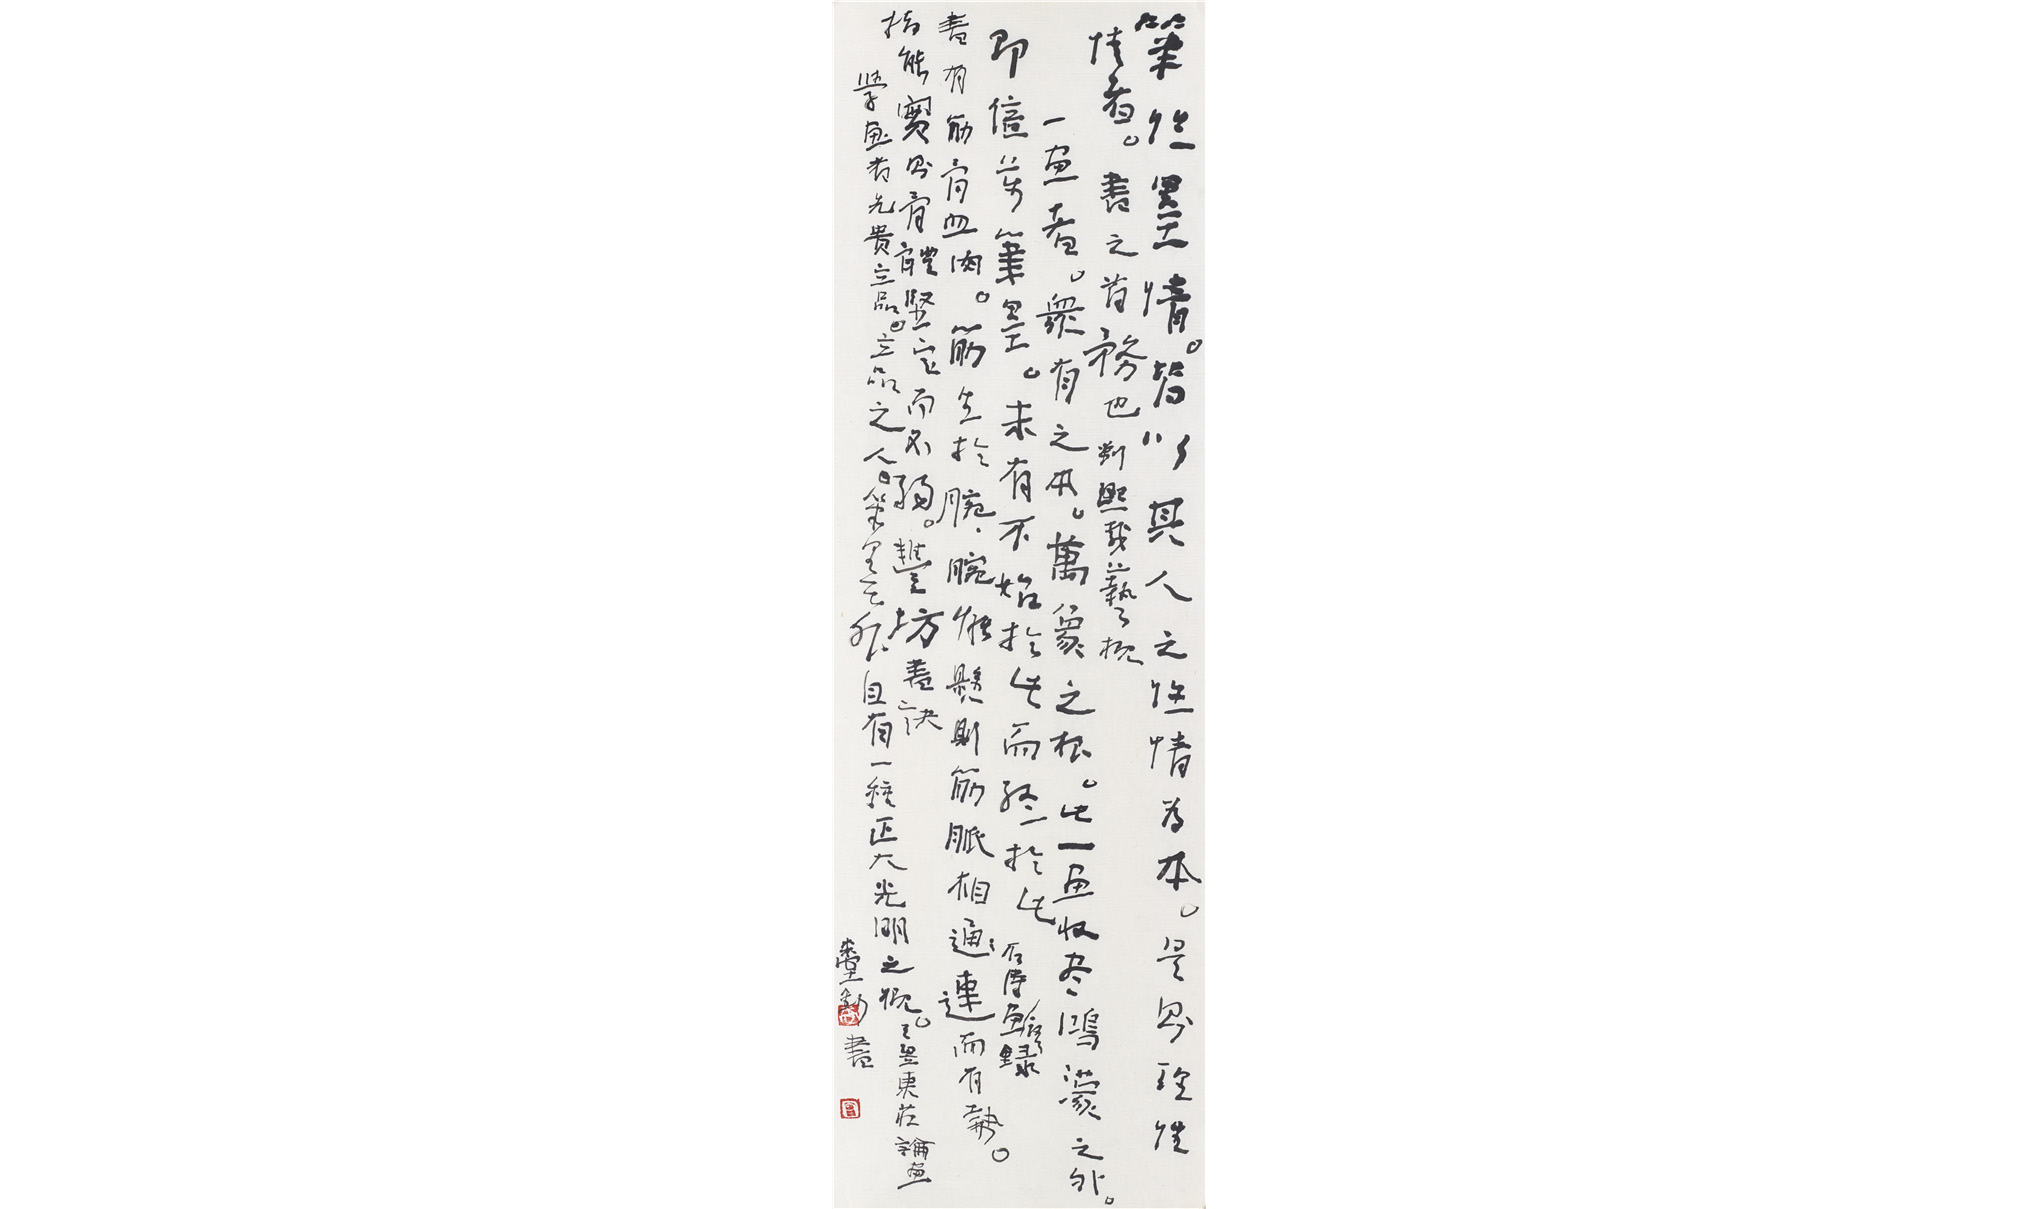 筆性墨情。皆以其人之性情為本。是則理性
情者。書之首務也 劉熙載藝概
一畫者。眾有之本。萬象之根。此一畫收盡鴻濛之外。
即億萬筆墨。未有不始於此而終於此 石濤畫語錄
書有筋骨血肉。筋生於腕、腕能懸則筋脈相通連而有勢。
指能實則骨體堅定而不弱。豐坊書訣
學畫者先貴立品。立品之人。筆墨之外自有一種正大光明之概。王昱東莊論畫
書